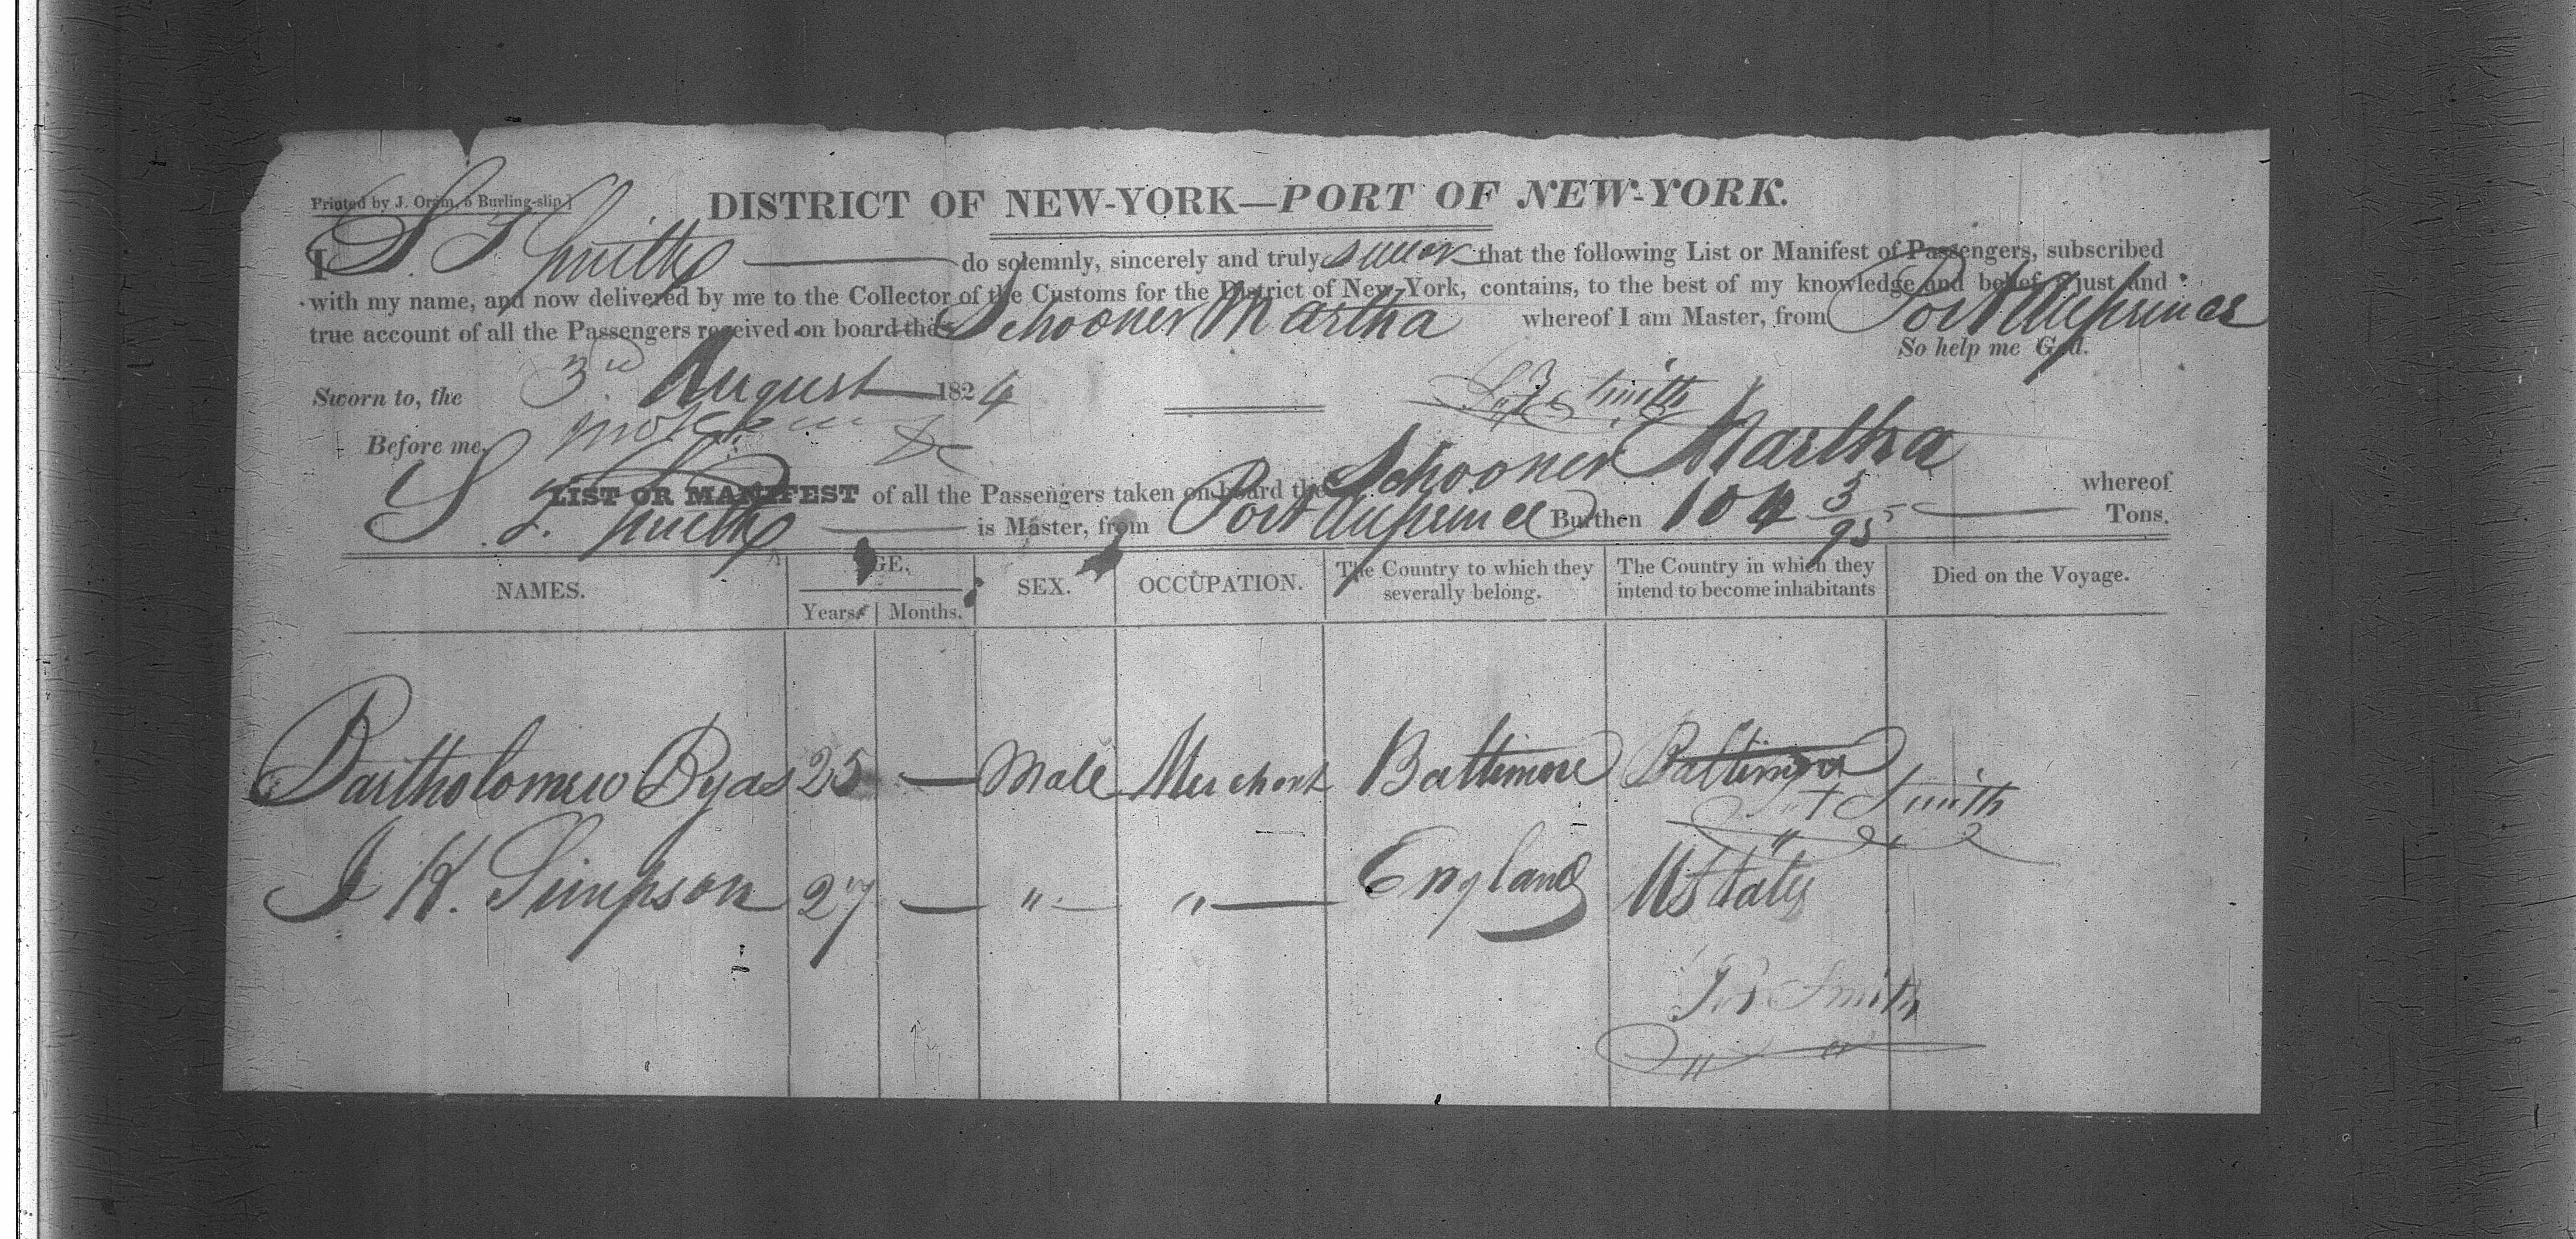 Printed by J. Oram, 5 Burling-slip.]
DISTRICT OF NEW-YORK—PORT OF NEW-YORK.
I S. T. Smith do solemnly, sincerely and truly swear that the following List or Manifest of Passengers, subscribed
with my name, and now delivered by me to the Collector of the Customs for the District of New-York, contains, to the best of my knowledge and belief, a just and
true account of all the Passengers received on board the Schooner Martha whereof I am Master, from Port Auprince
So help me God.
Sworn to, the 3rd August 1824
Smith
Before me,
LIST OR MANIFEST of all the Passengers taken on board the Schooner Martha whereof
S. T. Smith is Master, from Port Auprince Burthen 104 3/95 Tons.
NAMES. AGE. Years. Months. SEX. OCCUPATION. The Country to which they severally belong. The Country in which they intend to become inhabitants Died on the Voyage.
Bartholomew Byas 25 — Male Merchant Baltimore Baltimore
T Smith
J K. Simpson 27 — " " England U States
Smith